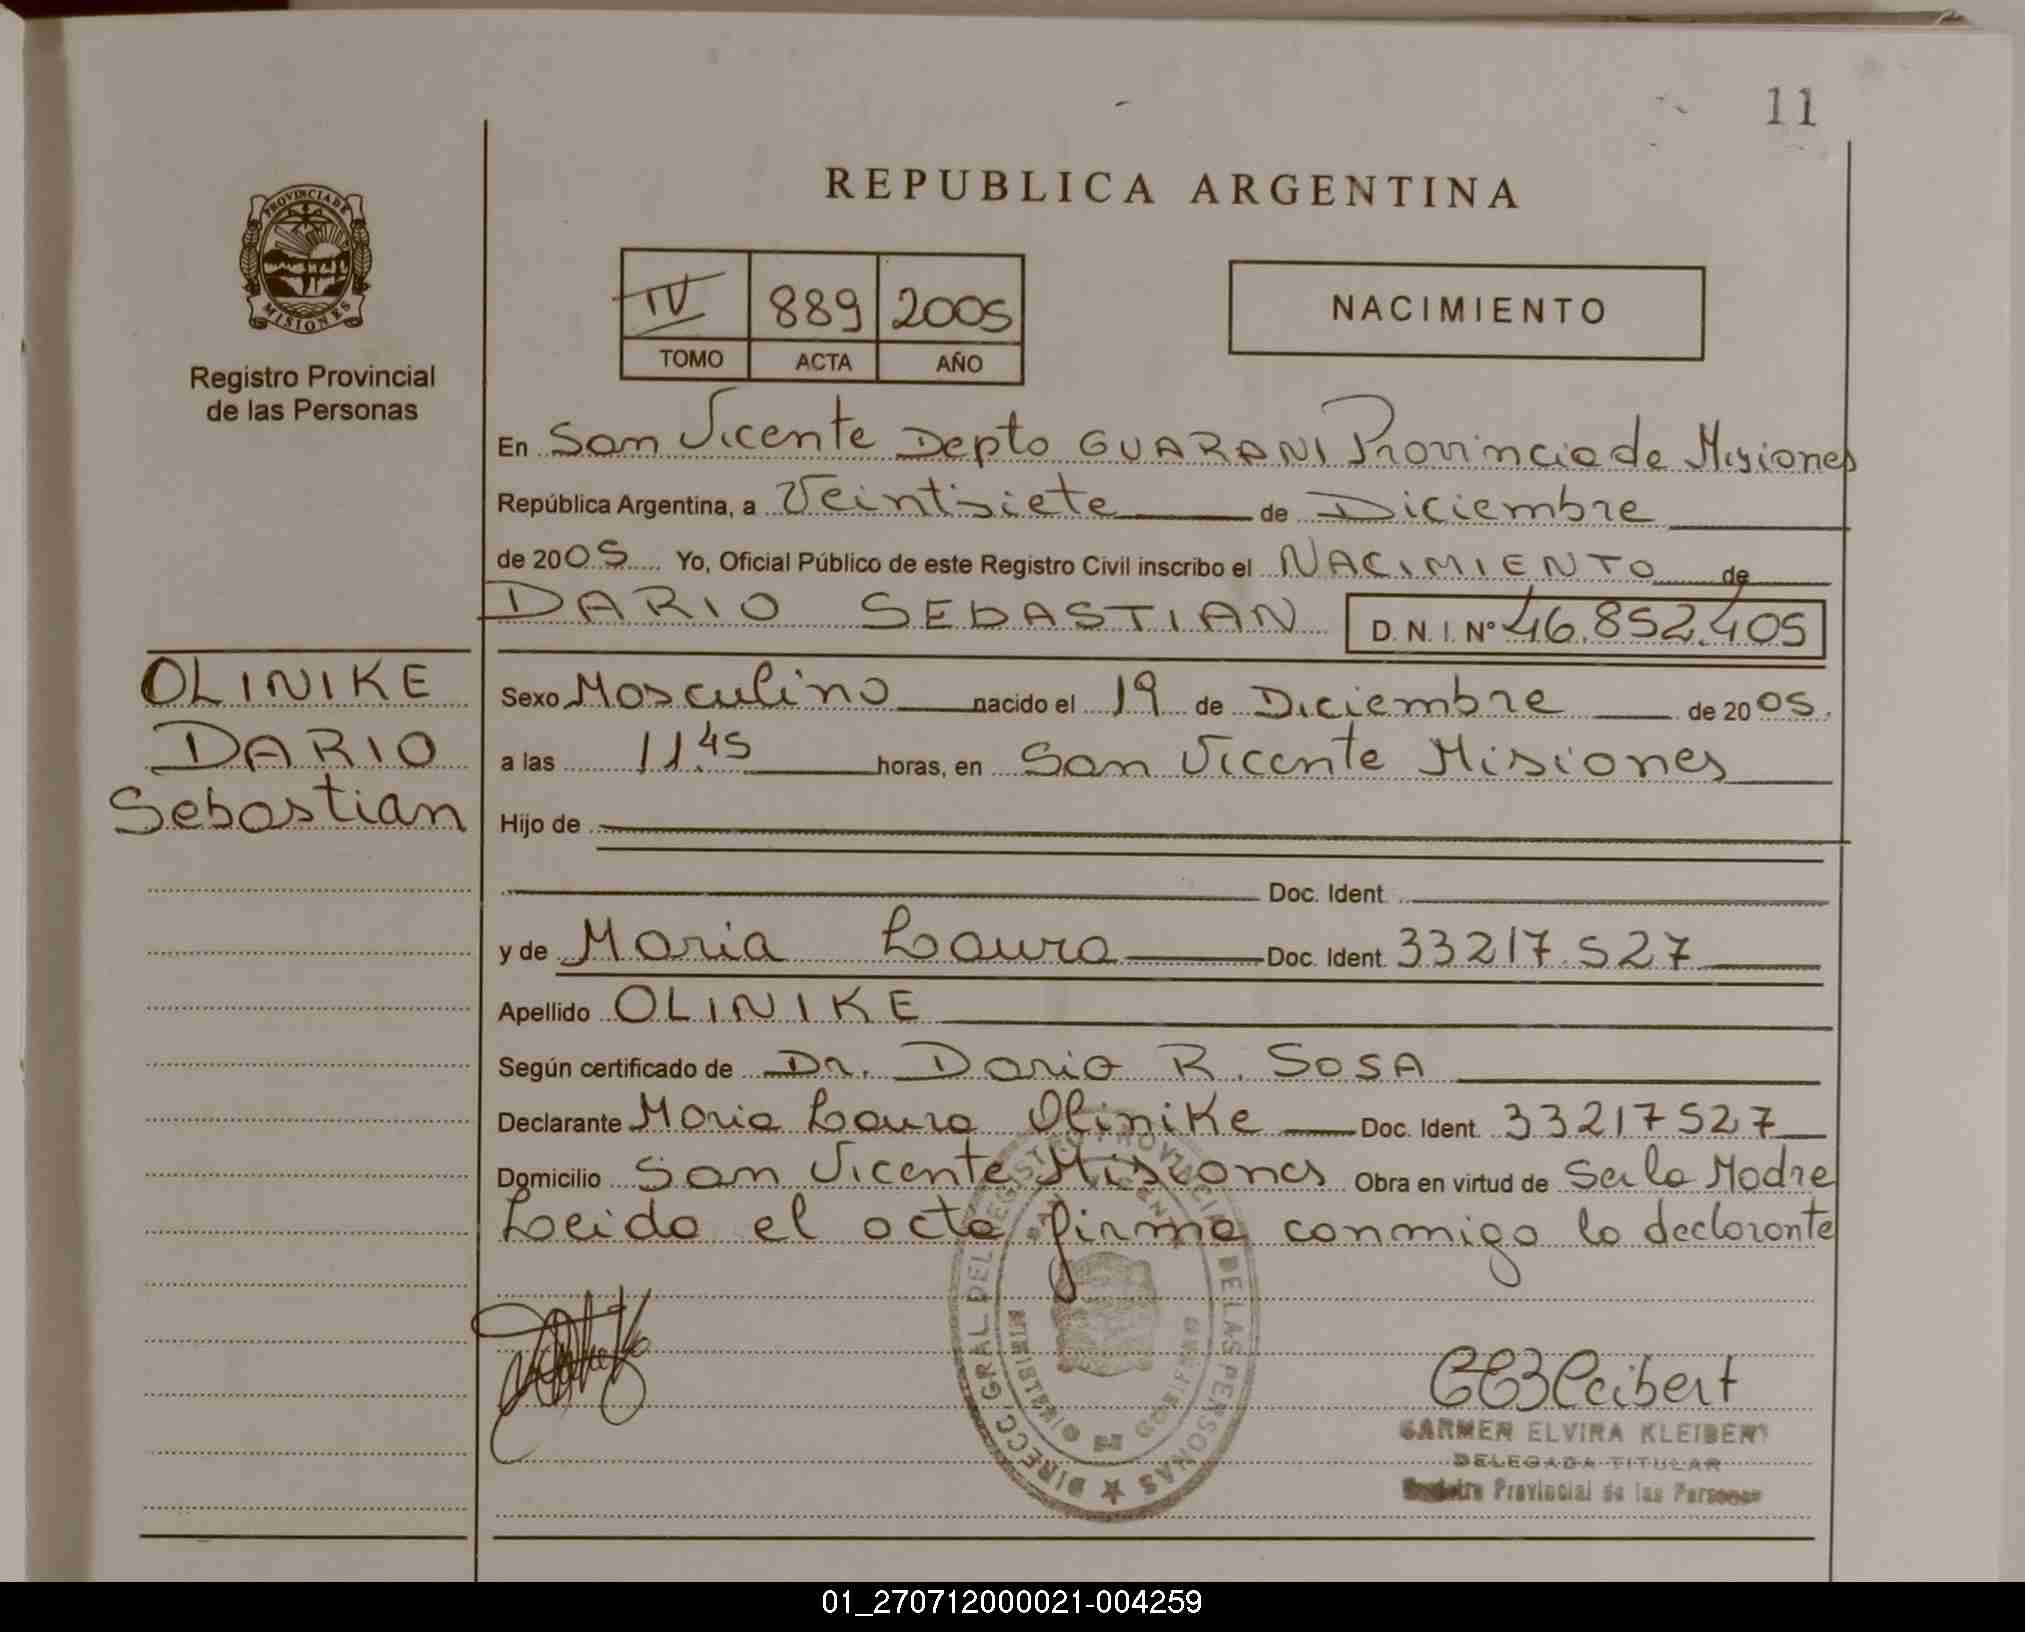 11
REPUBLICA ARGENTINA
PROVINCIA DE
MISIONES
Registro Provincial
de las Personas
IV 889 2005
TOMO ACTA AÑO
NACIMIENTO
En San Vicente Depto GUARANI Provincia de Misiones
República Argentina, a Veintisiete de Diciembre
de 2005 Yo, Oficial Público de este Registro Civil inscribo el NACIMIENTO de
DARIO SEBASTIAN D. N. I. Nº 46.852.405
OLINIKE
DARIO
Sebastian
Sexo Masculino nacido el 19 de Diciembre de 2005.
a las 11.45 horas, en San Vicente Misiones
Hijo de
Doc. Ident.
y de Maria Laura Doc. Ident. 33217.527
Apellido OLINIKE
Según certificado de Dr. Dario R. SOSA
Declarante Maria Laura Olinike Doc. Ident. 33217527
Domicilio San Vicente Misiones Obra en virtud de Ser la Madre
Leida el acta firma conmigo la declarante
DIRECC. GRAL DEL REGISTRO PROVINCIAL DE LAS PERSONAS
MINISTERIO DE GOBIERNO
CEKleibert
CARMEN ELVIRA KLEIBERT
DELEGADA TITULAR
Registro Provincial de las Personas
01_270712000021-004259